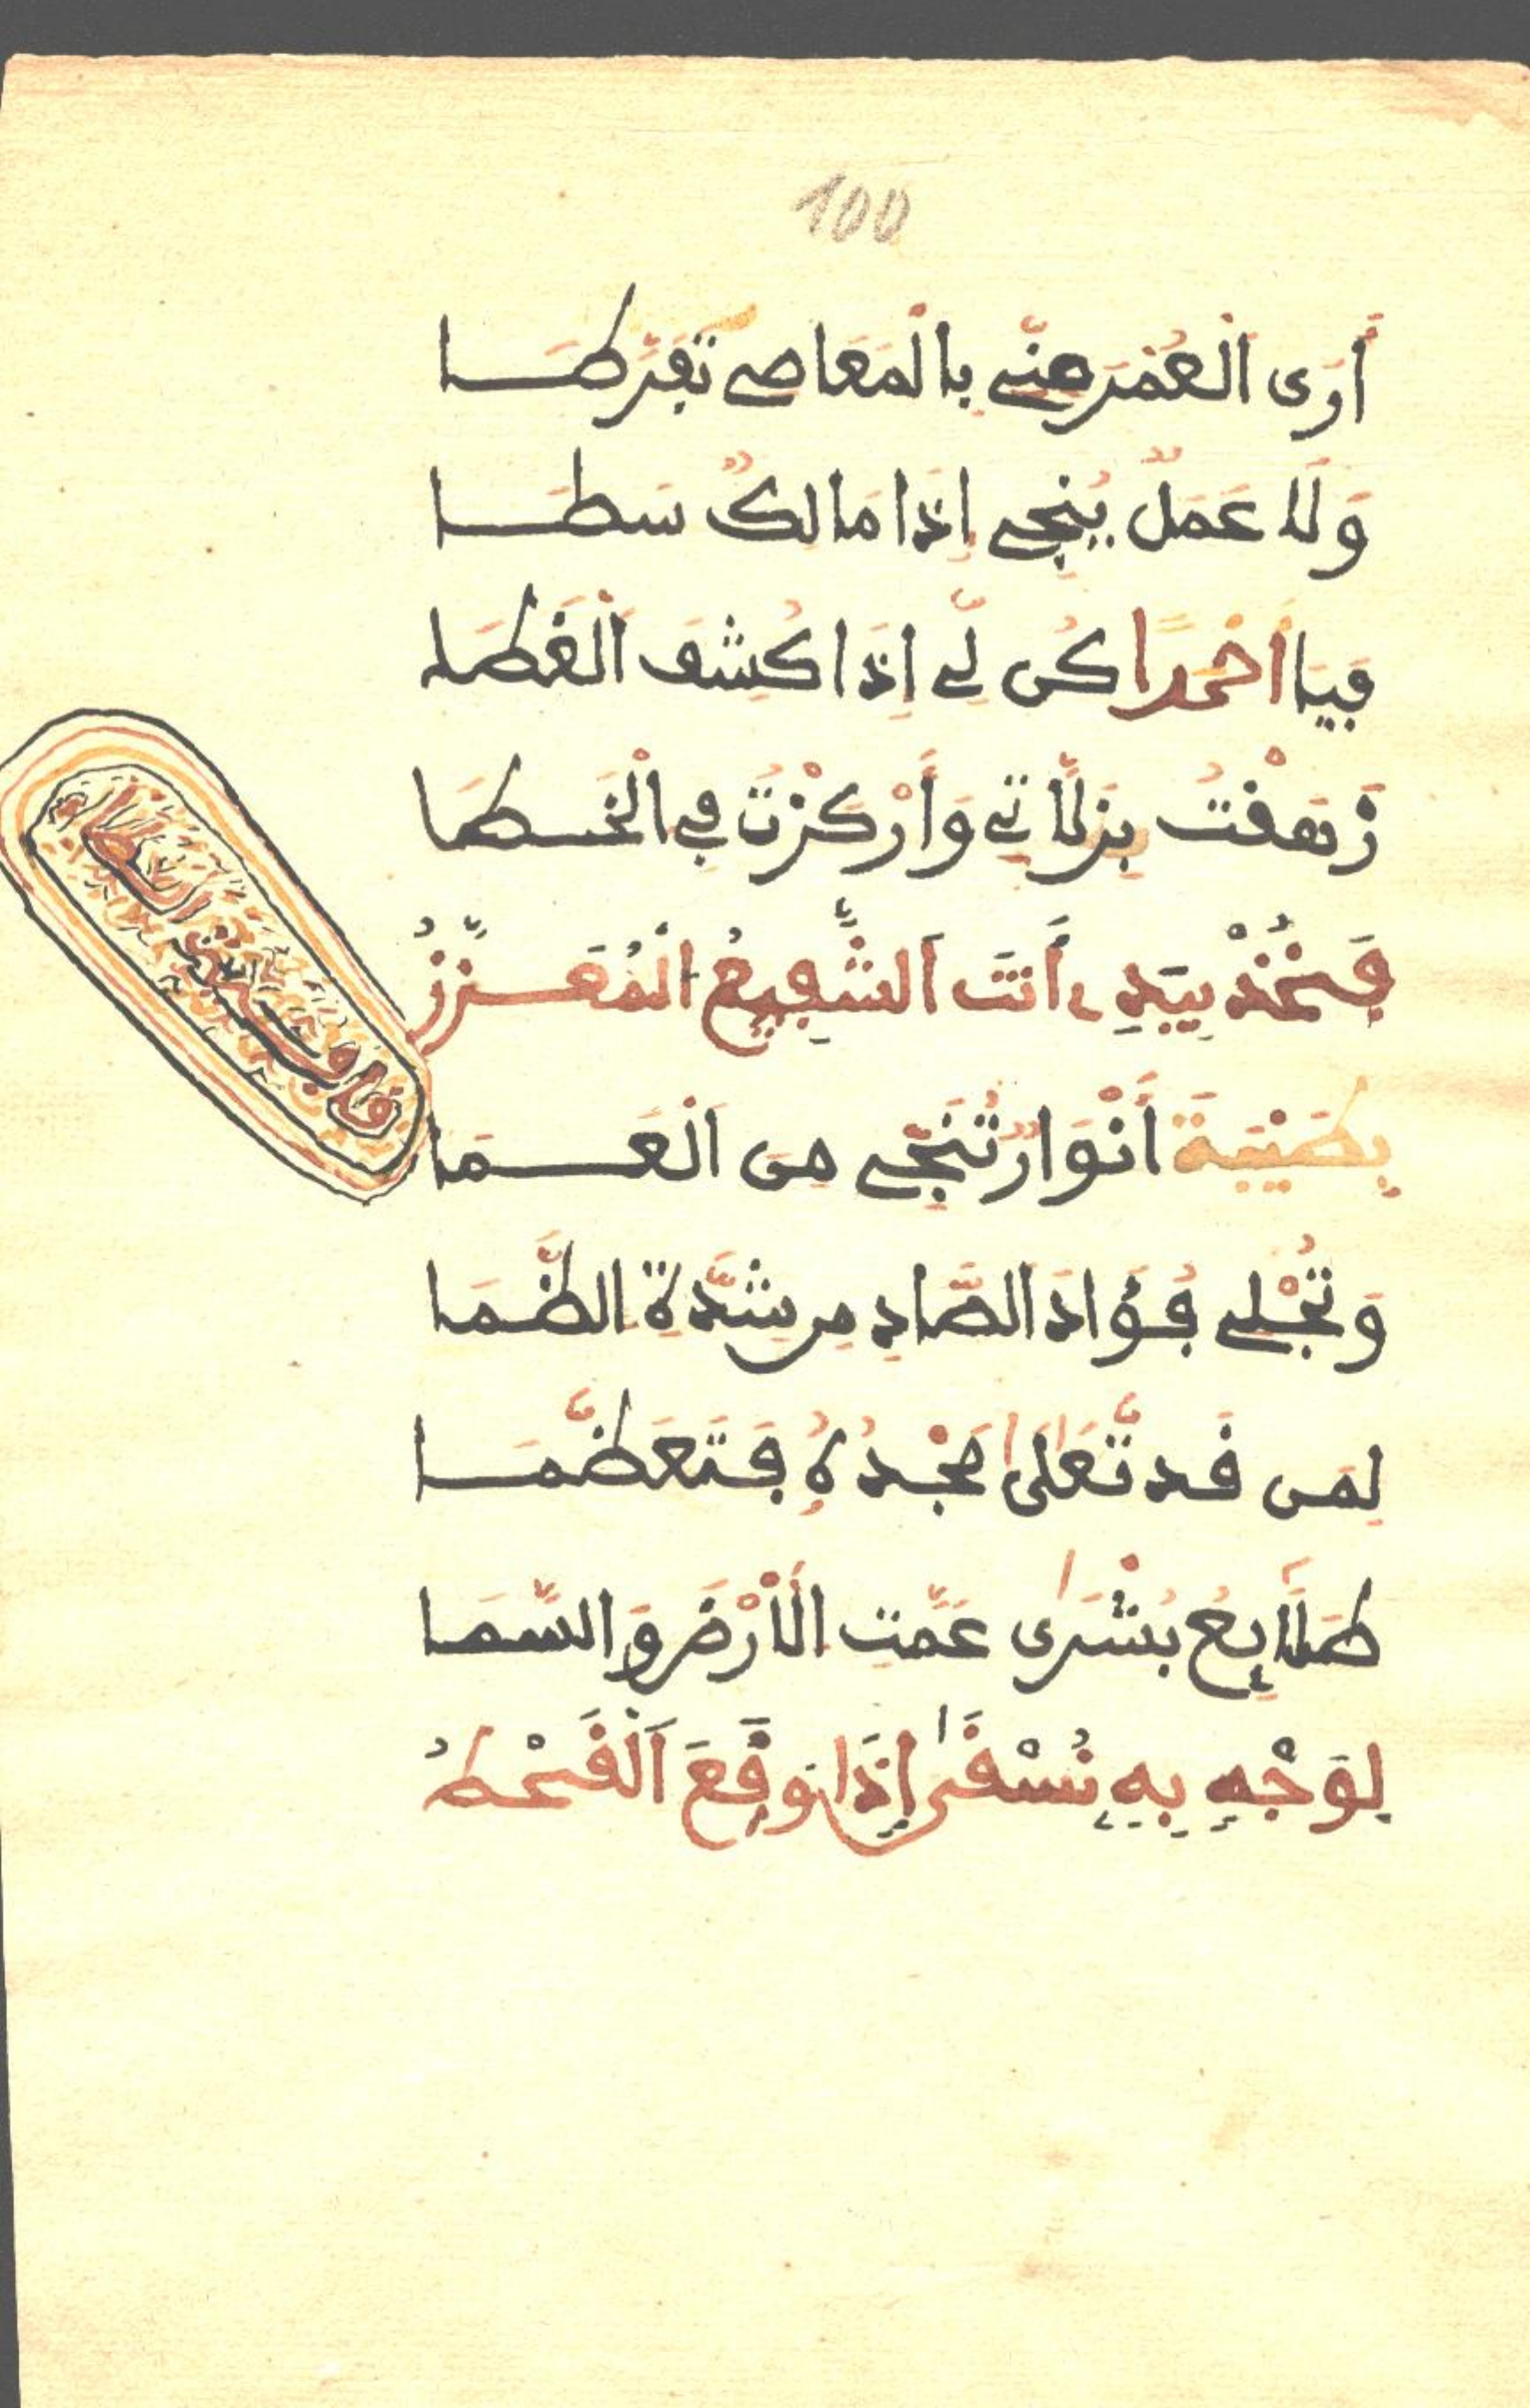 100
أَرَى الْعُمْرَ مِنِّي بِالْمَعَاصِي تَفَرَّطَا
وَلَا عَمَلٌ يُنْجِي إِذَا مَالِكٌ سَطَا
فَيَا أَحْمَدًا كُن لِّي إِذَا كُشِفَ الْغَطَا
زَهَقْتُ بِزَلَّاتِي وَأُرْكِزْتُ فِي الْخَطَا
فَخُذْ بِيَدِي أَنتَ الشَّفِيعُ الْمُعَزَّزُ
بِطَيْبَةَ أَنْوَارٌ تُنَجِّي مِنَ الْعَمَا
وَتُجْلِي فُؤَادَ الصَّادِ مِن شِدَّةِ الظَّمَا
لِمَن قَد تَّعَالَى مَجْدُهُ فَتَعَظَّمَا
طَلَائِعُ بُشْرَى عَمَّتِ الْأَرْضَ وَالسَّمَا
لِوَجْهٍ بِهِ نُسْقَى إِذَا وَقَعَ الْقَحْطُ